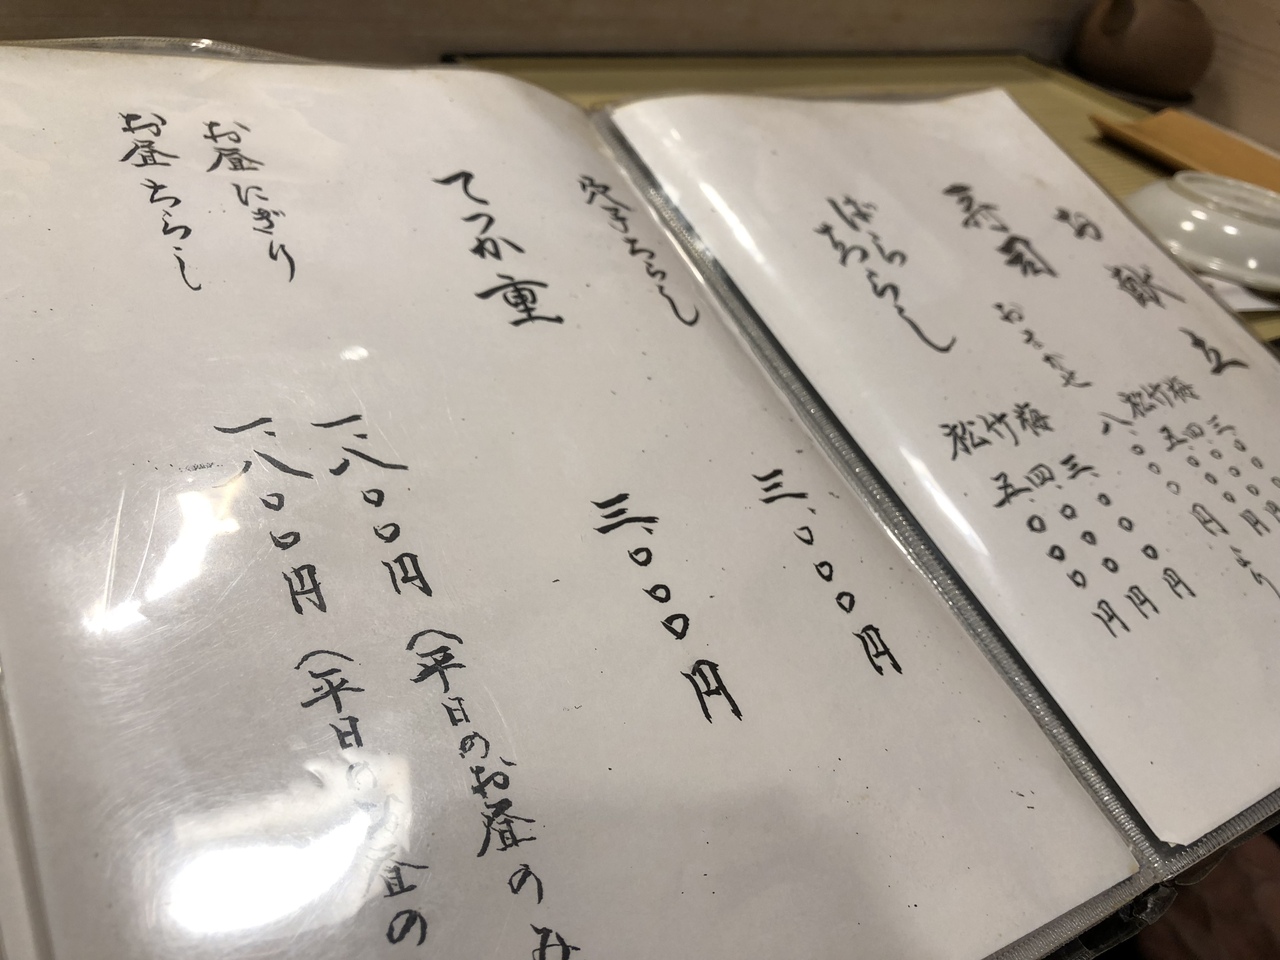 お献立
寿司
梅 三、〇〇〇円
竹 四、〇〇〇円
松 五、〇〇〇円
おまかせ 八、〇〇〇円より
ばらちらし
梅 三、〇〇〇円
竹 四、〇〇〇円
松 五、〇〇〇円
穴子ちらし 三、〇〇〇円
てっか重 三、〇〇〇円
お昼にぎり 一、八〇〇円 (平日のお昼のみ
お昼ちらし 一、八〇〇円 (平日のお昼の